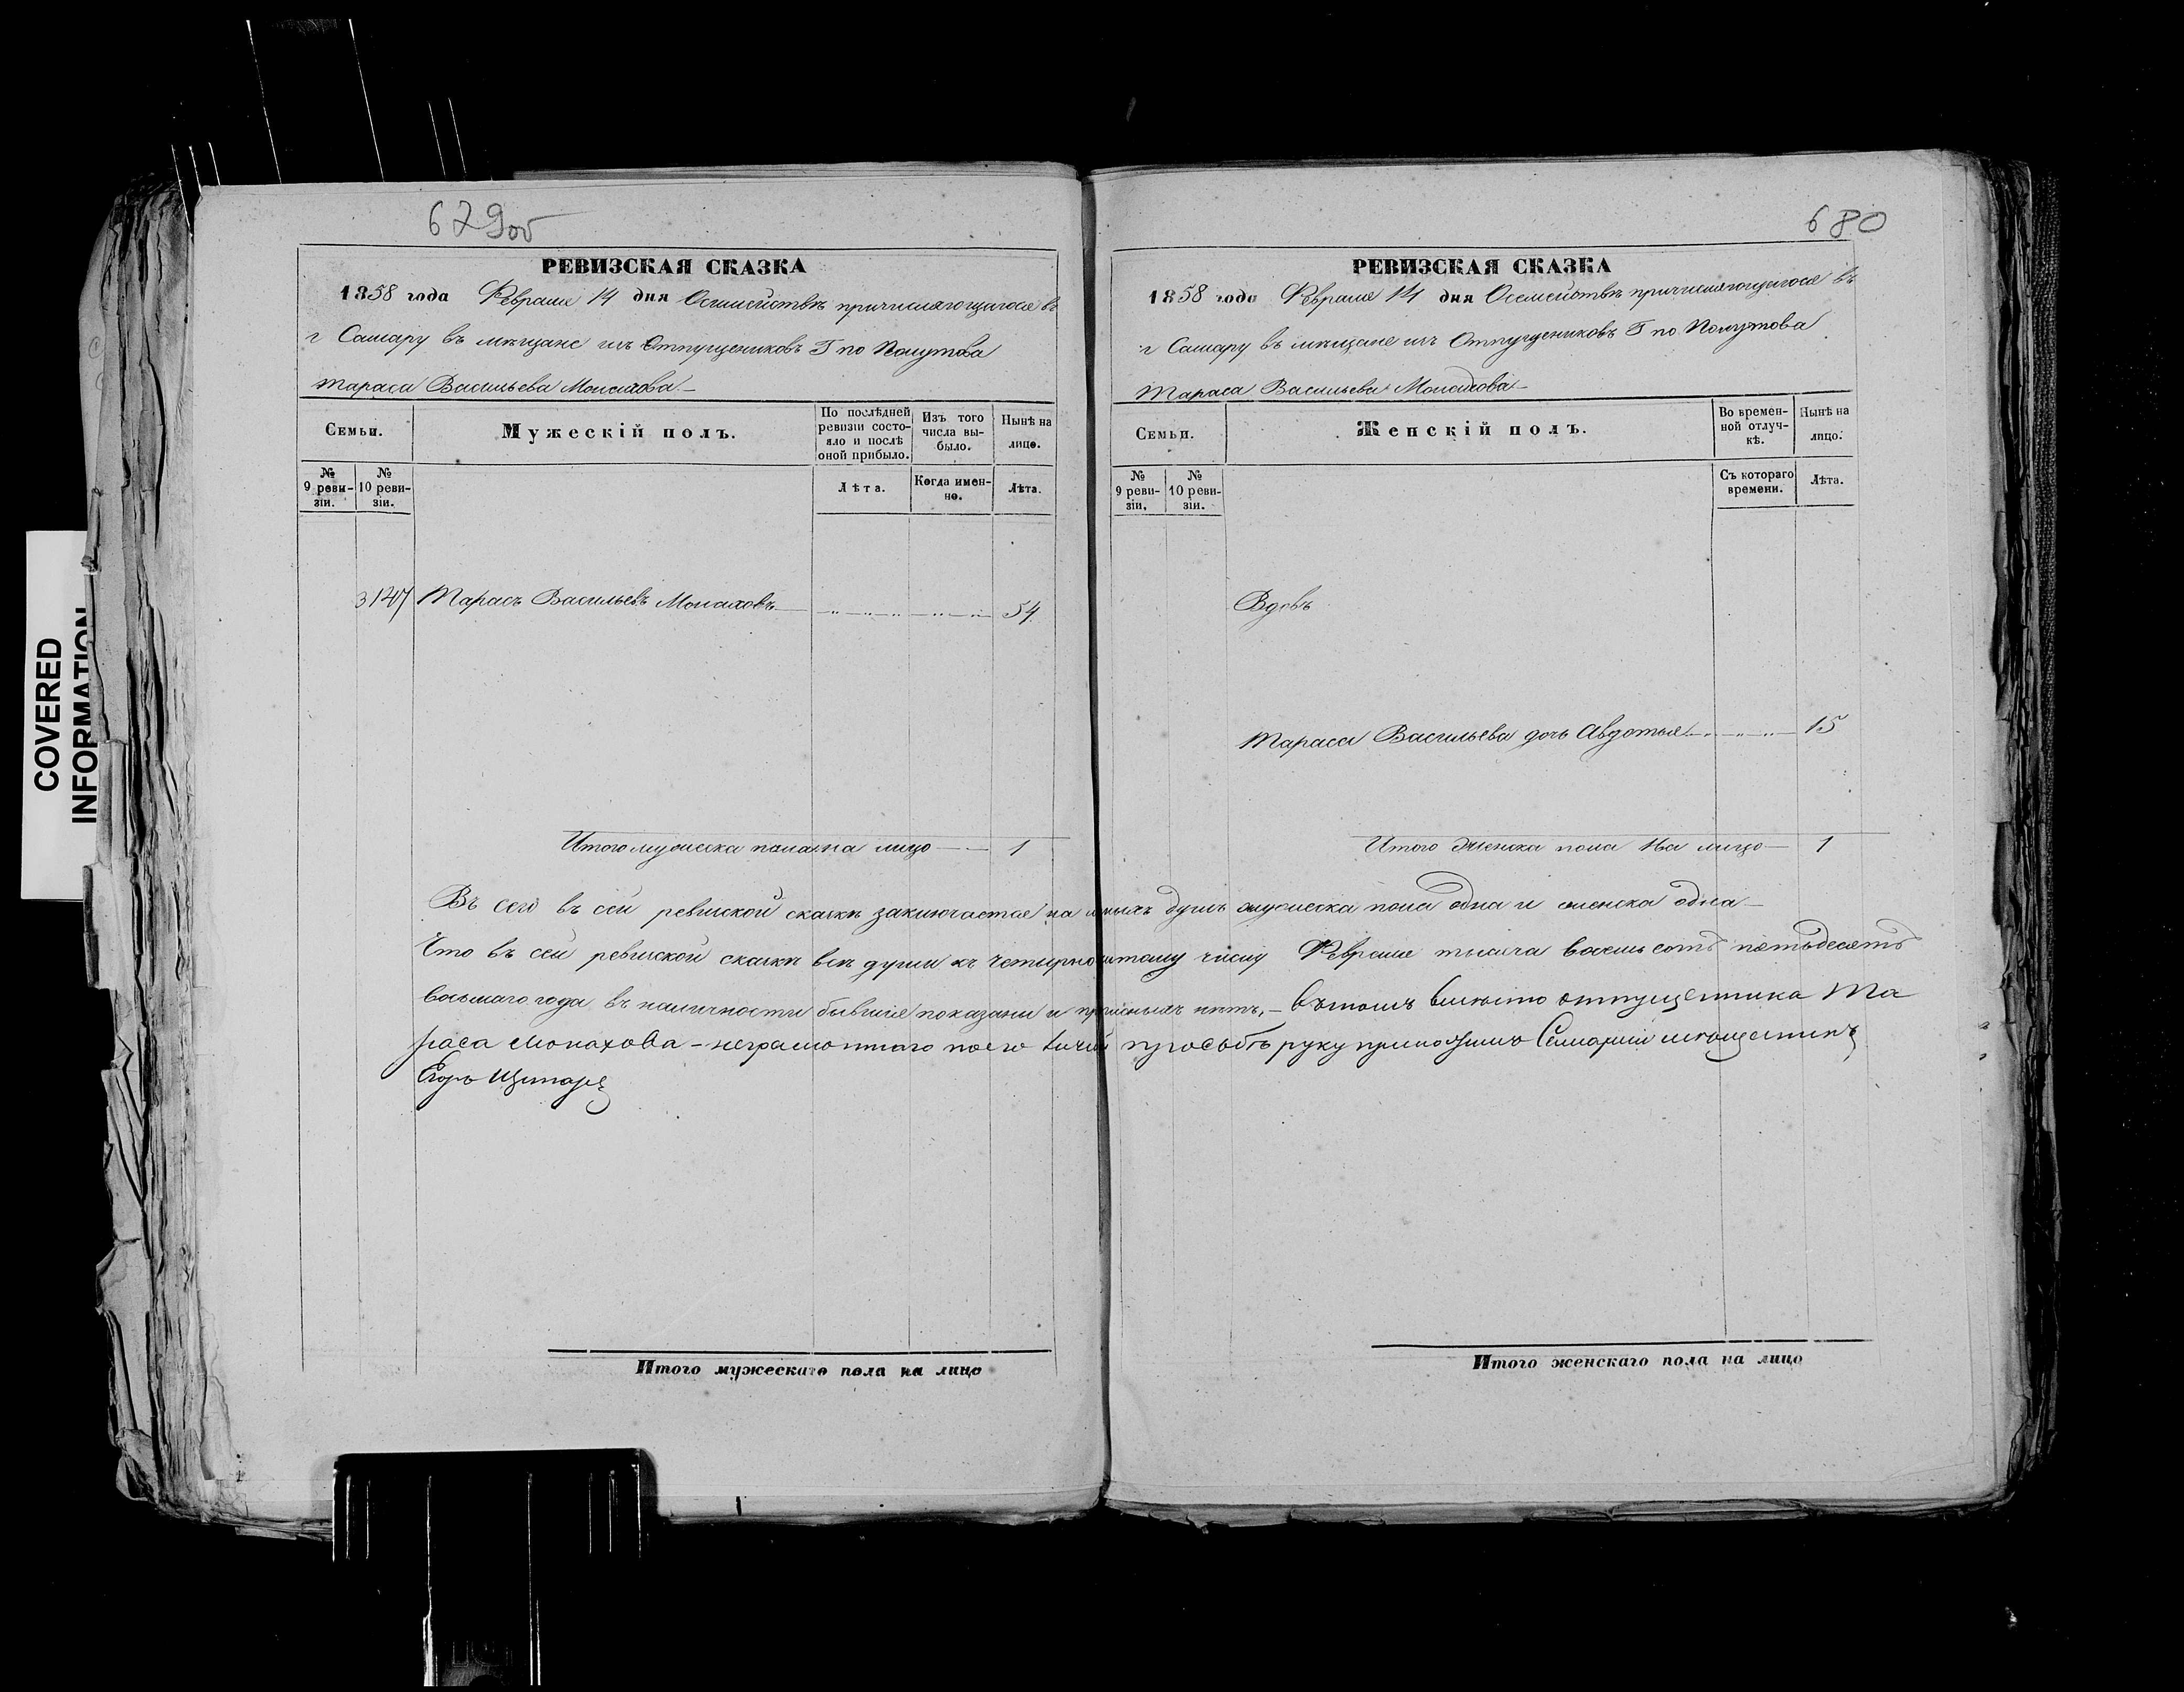 COVERED
INFORMATION
679об
РЕВИЗСКАЯ СКАЗКА
1858 года Февраля 14 дня О семействѣ причисляющагося въ
г Самару въ мѣщане изъ Отпущениковъ Г по Полутова
Тараса Васильева Монахова
Семьи.
Мужескій полъ.
По послѣдней ревизіи состояло и послѣ оной прибыло.
Изъ того числа выбыло.
Нынѣ на лицо.
№ 9 ревизіи.
№ 10 ревизіи.
Лѣта.
Когда именно.
Лѣта.
3147 Тарасъ Васильевъ Монаховъ 54
Итого мужеска пола на лицо 1
680
РЕВИЗСКАЯ СКАЗКА
1858 года Февраля 14 дня О семействѣ причисляющагося въ
г Самару въ мѣщане изъ Отпущениковъ Г по Полутова
Тараса Васильева Монахова
Семьи.
Женскій полъ.
Во временной отлучкѣ.
Нынѣ на лицо.
№ 9 ревизіи.
№ 10 ревизіи.
Съ котораго времени.
Лѣта.
Вдовъ
Тараса Васильева дочь Авдотья 15
Итого женска пола на лицо 1
Въ сего въ сей ревиской скаске заключается на личныхъ душъ мужеска пола одна и женска одна
Что въ сей ревиской скаскѣ всѣ души къ четырнадцатому числу Февраля тысяча восемь сотъ пятьдесятъ
восьмаго года въ наличности бывшия показаны и прописныхъ нетъ, – вътомъ вместо отпущеника Та
раса Монахова – неграмотнаго по его личной прозьбѣ руку приложилъ Самарский мещанинъ
Егоръ
Итого мужескаго пола на лицо
Итого женскаго пола на лицо